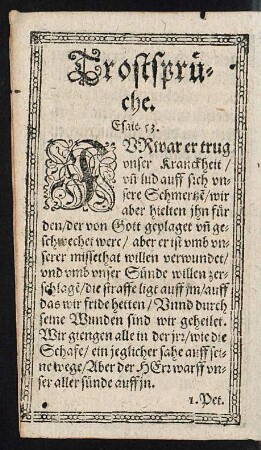 Trostsprü-
che.
Esaie. 53.
FVRwar er trug
vnser Kranckheit /
vñ lud auff sich vn-
sere Schmertzē / wir
aber hielten jhn für
den / der von Gott geplaget vñ ge-
schwechet were / aber er ist vmb vn-
serer missethat willen verwundet /
vnd vmb vnser Sünde willen zer-
schlagē / die straffe ligt auff jm / auff
das wir fride hetten / Vnnd durch
seine Wunden sind wir geheilet.
Wir giengen alle in der jrr / wie die
Schafe / ein jeglicher sahe auff sei-
ne wege / Aber der HErr warff vn-
ser aller sünde auff jn.
1. Pet.